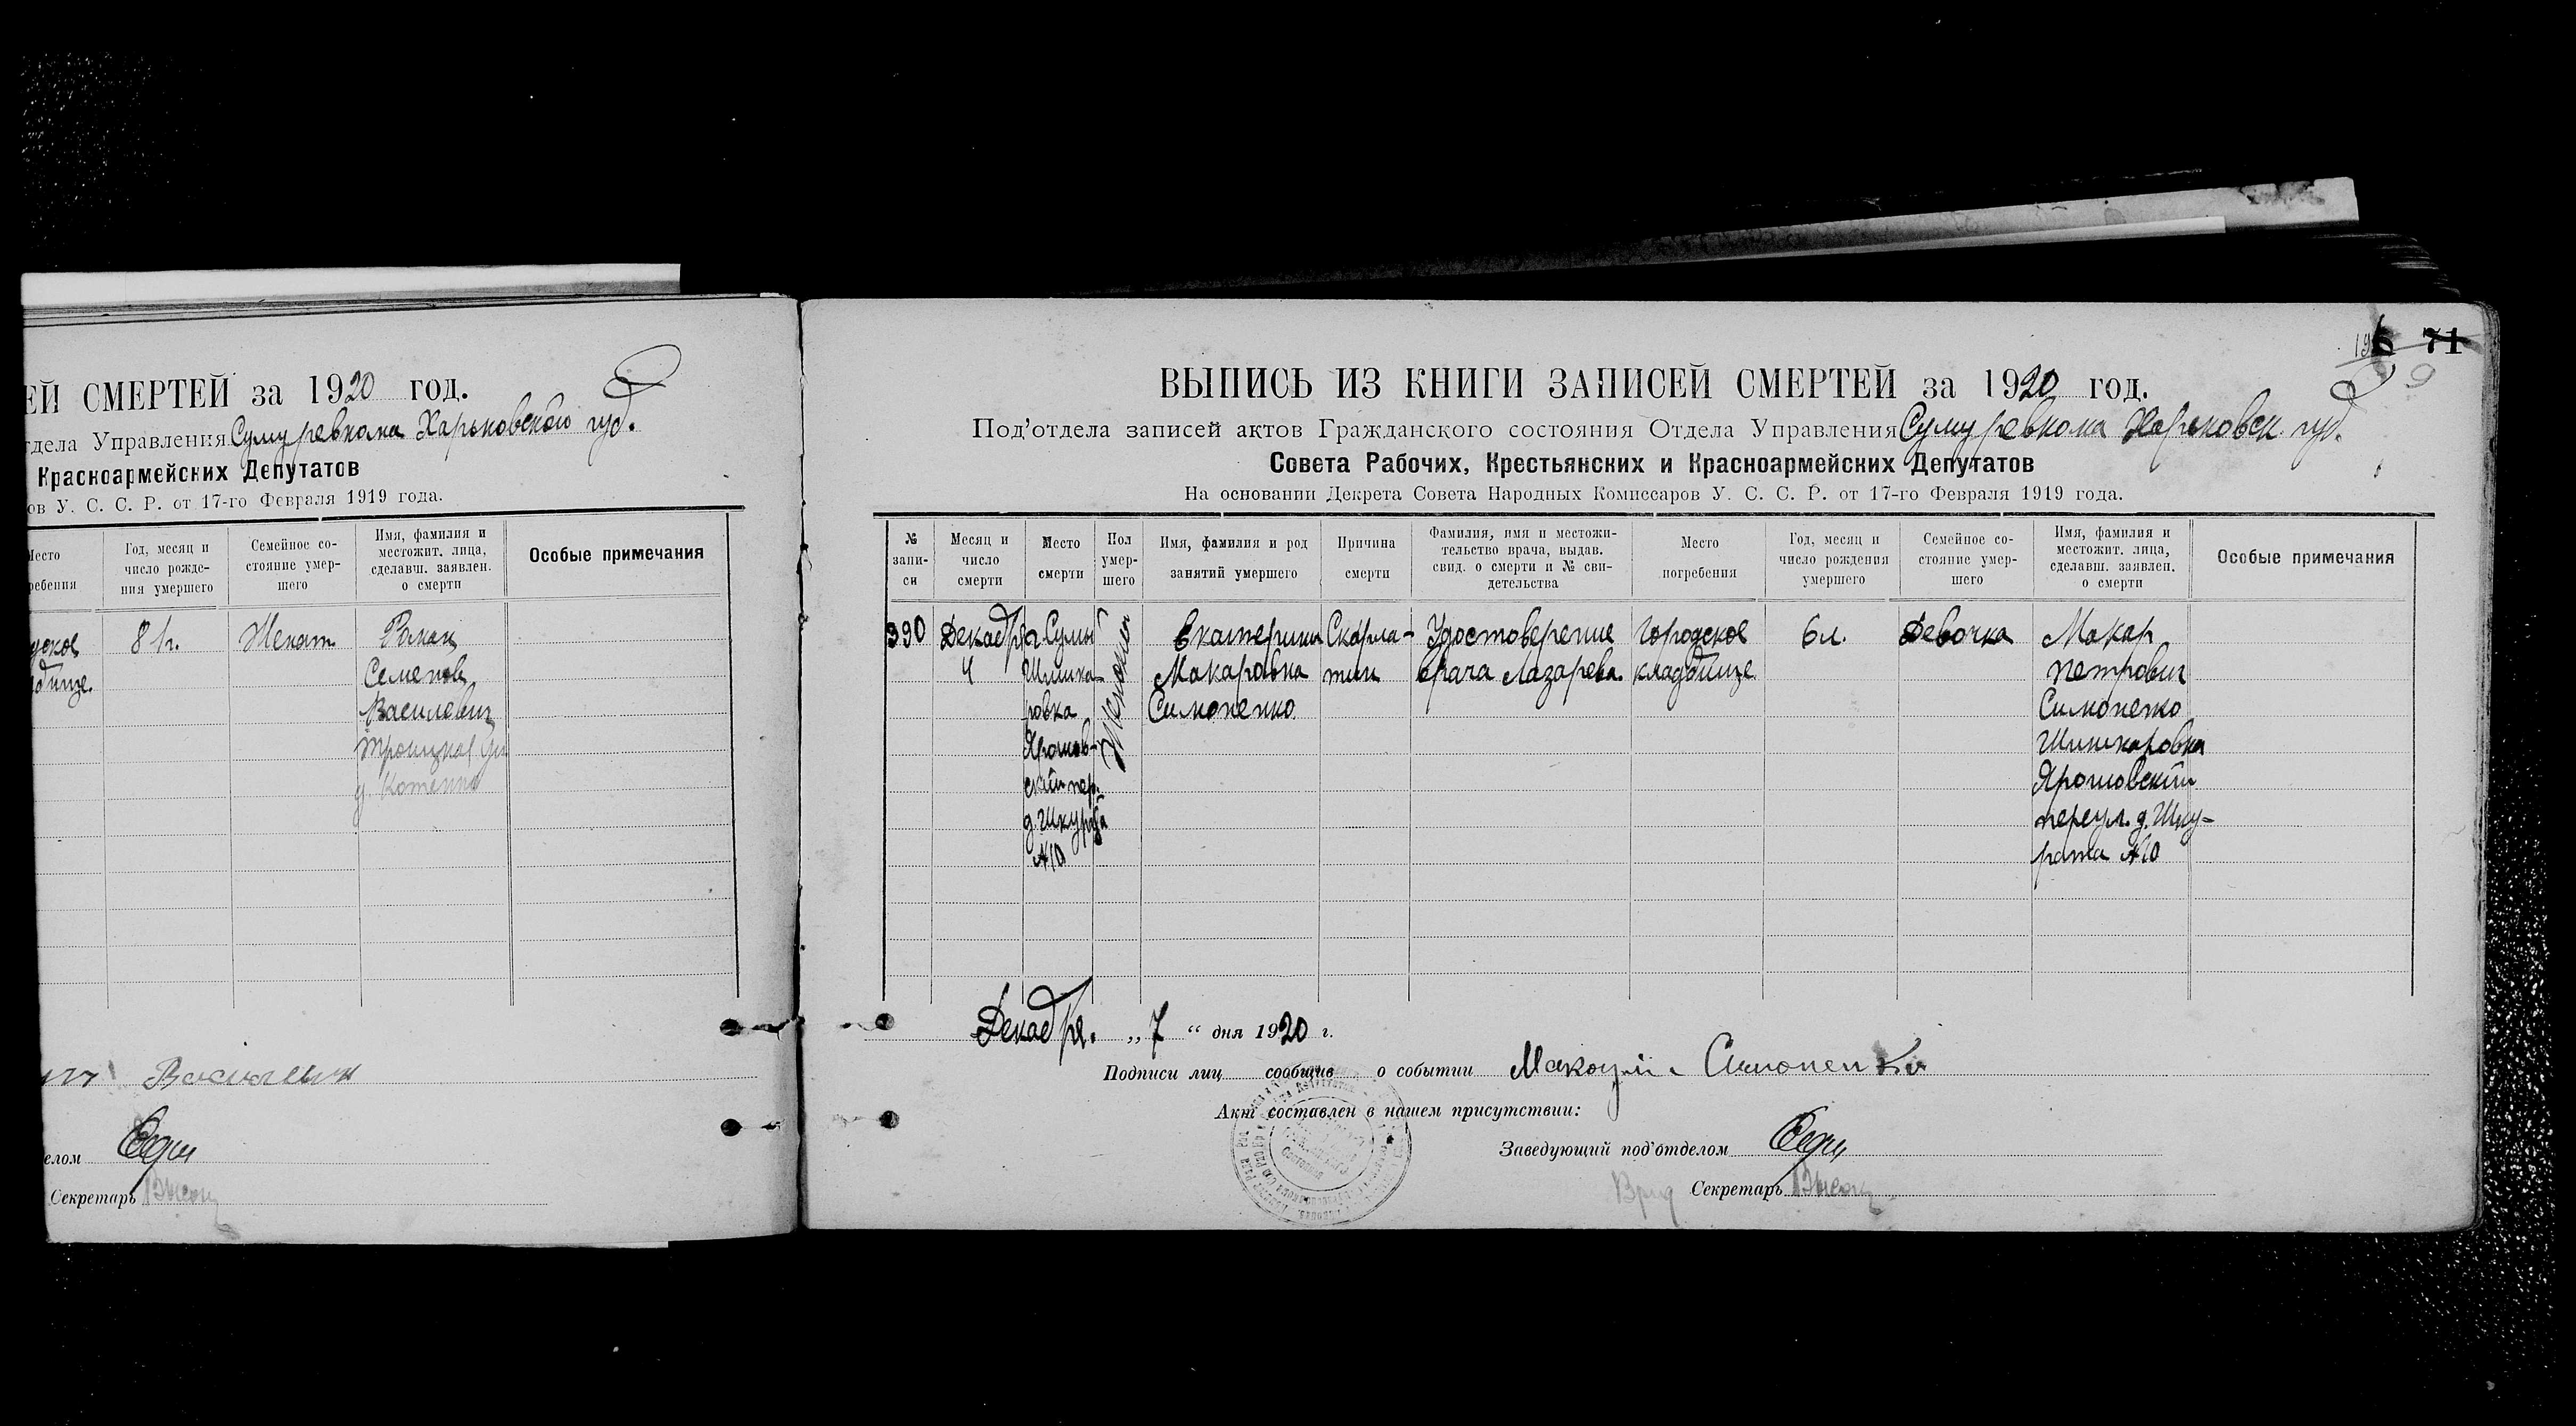 ЕЙ СМЕРТЕЙ за 1920 год.
тдела Управления Сумуревкома Харьковской губ.
Красноармейских Депутатов
ов У. С. С. Р. от 17-го Февраля 1919 года.
Место
ребения
Год, месяц и
число рожде-
ния умершего
Семейное со-
стояние умер-
шего
Имя, фамилия и
местожит. лица,
сделавш. заявлен.
о смерти
Особые примечания
Женат
Семенов
Василевич
Троицкая
Секретарь
71
9
ВЫПИСЬ ИЗ КНИГИ ЗАПИСЕЙ СМЕРТЕЙ за 1920 год.
Под'отдела записей актов Гражданского состояния Отдела Управления Сумуревкома Харьковск. губ.
Совета Рабочих, Крестьянских и Красноармейских Депутатов
На основании Декрета Совета Народных Комиссаров У. С. С. Р. от 17-го Февраля 1919 года.
№
запи-
си
Месяц и
число
смерти
Место
смерти
Пол
умер-
шего
Имя, фамилия и род
занятий умершего
Причина
смерти
Фамилия, имя и местожи-
тельство врача, выдав.
свид. о смерти и № сви-
детельства
Место
погребения
Год, месяц и
число рождения
умершего
Семейное со-
стояние умер-
шего
Имя, фамилия и
местожит. лица,
сделавш. заявлен.
о смерти
Особые примечания
390
Декабря
4
г. Сумы
Шишка-
ровка
Ярошов-
ский пер.
д. Шкурата
№10
Женский
Екатерина
Макаровна
Симоненко
Скарла-
тин
Удостоверение
врача Лазарева.
Городское
кладбище
6 л.
Девочка
Макар
Петрович
Симоненко
Шишкаровка
Ярошовский
переул. д. Шку-
рата №10
Декабря. „7“ дня 1920 г.
Подписи лиц сообщив о событии Симоненко
Акт составлен в нашем присутствии:
Заведующий под'отделом
Врид Секретарь